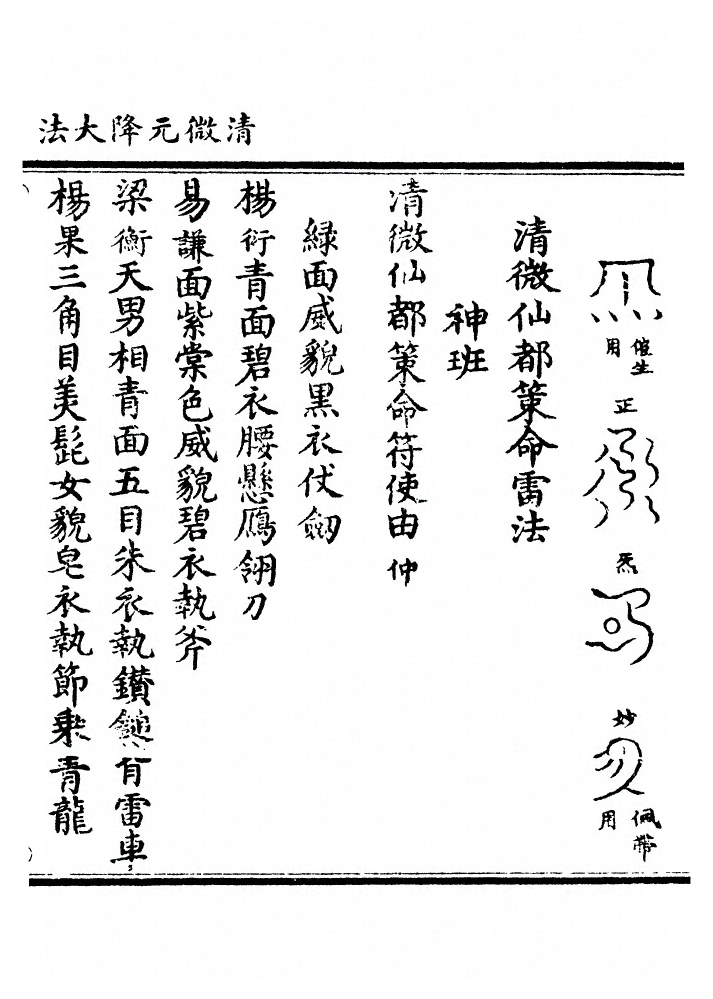 清微元降大法
催生用
正
炁
妙
佩帶用
清微仙都策命雷法
神班
清微仙都策命符使由仲
綠面威貌黑衣仗劒
楊衍青面碧衣腰懸鴈翎刀
易謙面紫棠色威貌碧衣執斧
梁衡天男相青面五目朱衣執鑽鎚有雷車
楊果三角目美髭女貌皂衣執節乘青龍